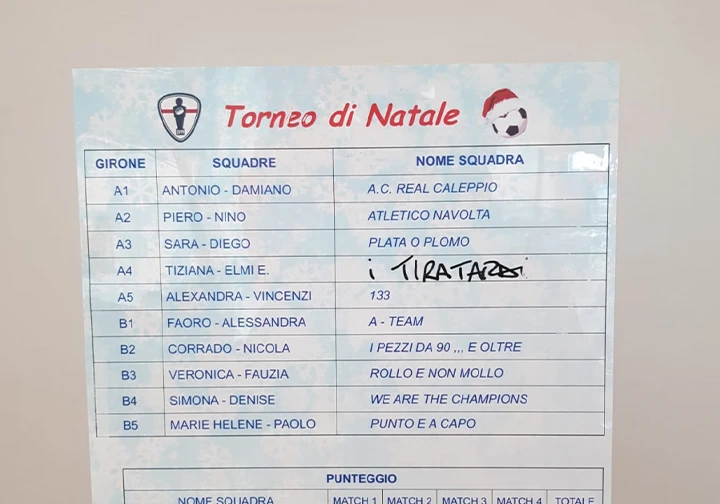 Torneo di Natale
GIRONE SQUADRE NOME SQUADRA
A1 ANTONIO - DAMIANO A.C. REAL CALEPPIO
A2 PIERO - NINO ATLETICO NAVOLTA
A3 SARA - DIEGO PLATA O PLOMO
A4 TIZIANA - ELMI E. i TIRATARDI
A5 ALEXANDRA - VINCENZI 133
B1 FAORO - ALESSANDRA A - TEAM
B2 CORRADO - NICOLA I PEZZI DA 90 ,,, E OLTRE
B3 VERONICA - FAUZIA ROLLO E NON MOLLO
B4 SIMONA - DENISE WE ARE THE CHAMPIONS
B5 MARIE HELENE - PAOLO PUNTO E A CAPO
PUNTEGGIO
NOME SQUADRA MATCH 1 MATCH 2 MATCH 3 MATCH 4 TOTALE